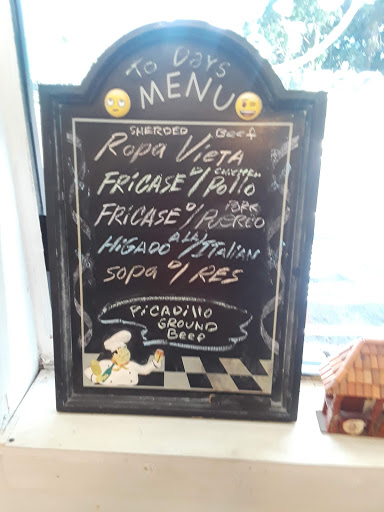 To Days
MENU
SHERDED Beef
Ropa Vieta
CHICKEN
FRICASE D/ Pollo
PORK
FRICASE D/ PUERCO
HIGADO A LA/ITALIAN
SOPA D/ RES
PiCADillo
GROUND
Beef